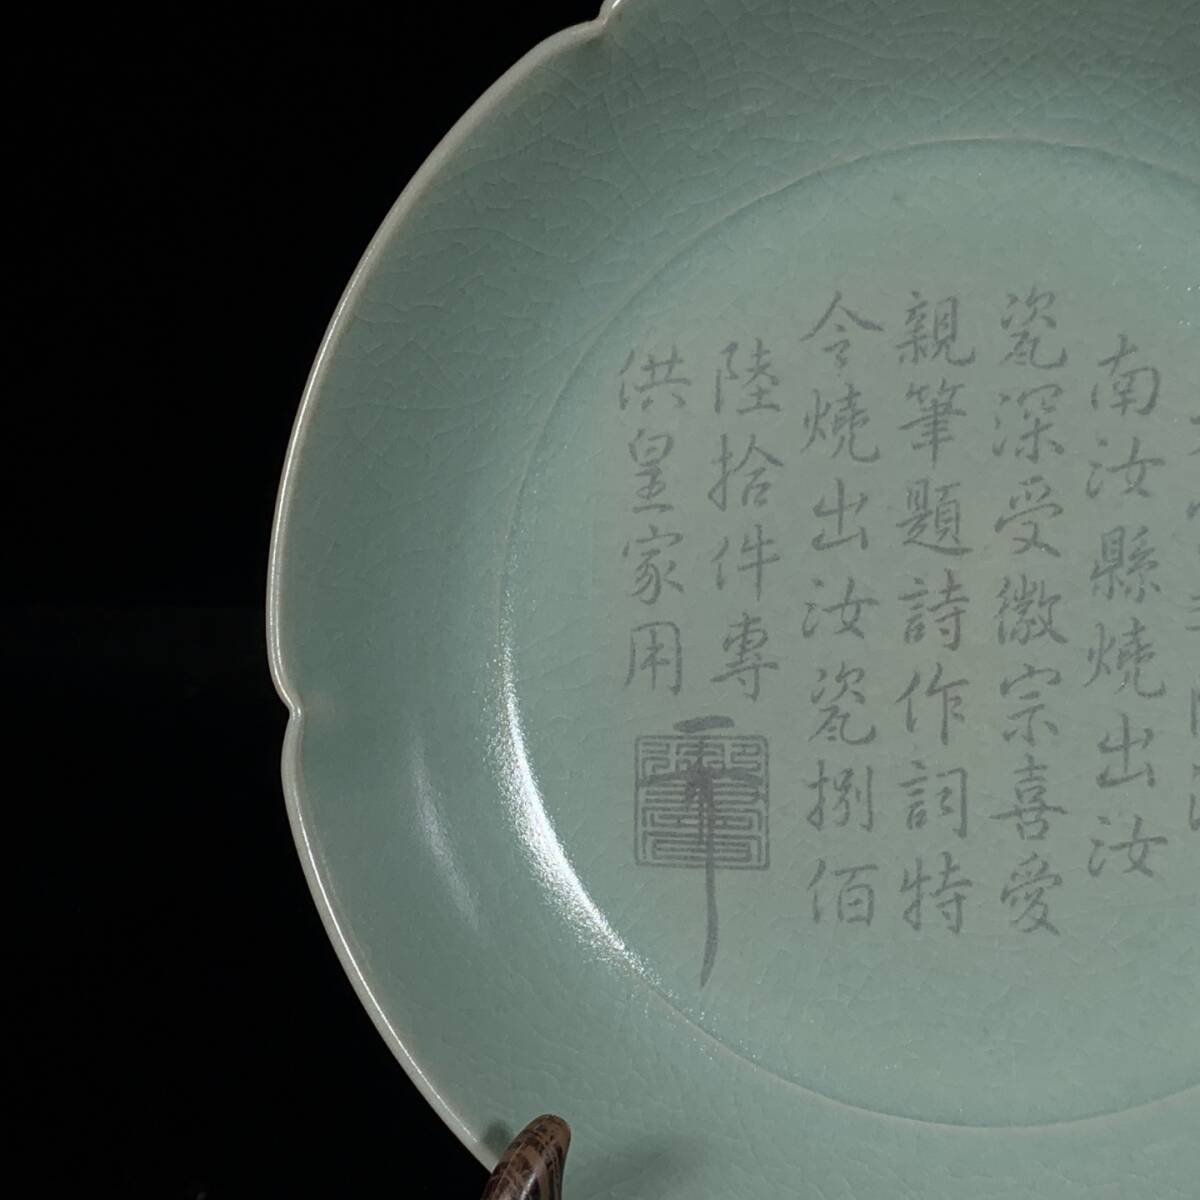 南汝縣燒出汝
瓷深受徽宗喜愛
親筆題詩作詞特
令燒出汝瓷捌佰
陸拾件專
供皇家用